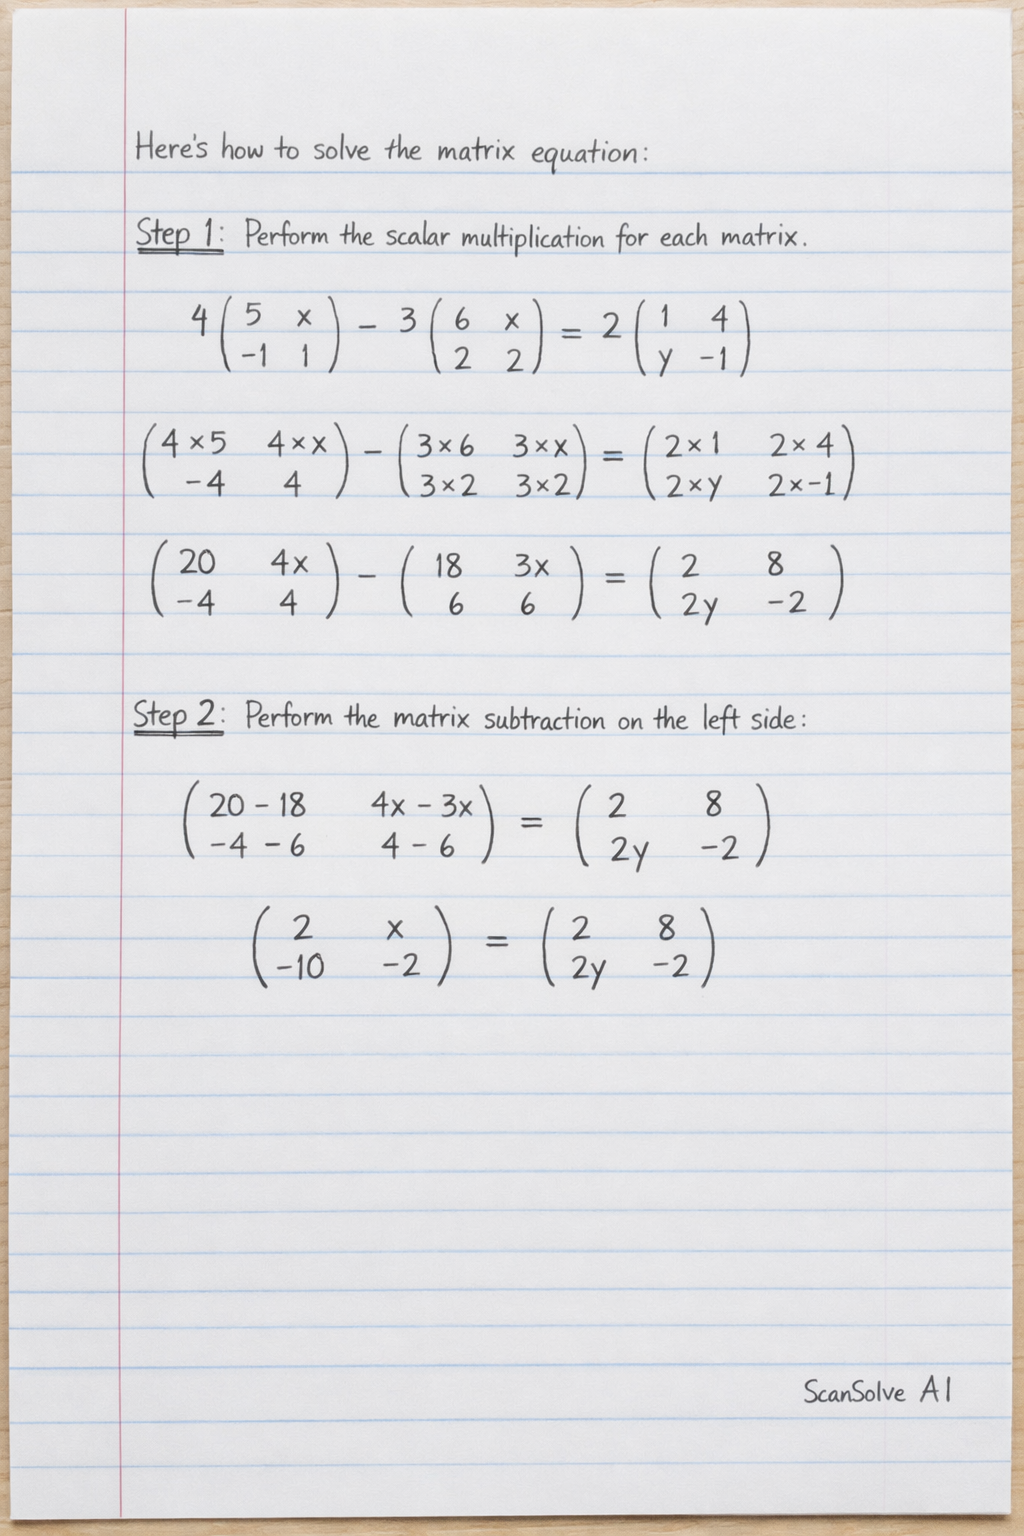 Here's how to solve the matrix equation:
Step 1: Perform the scalar multiplication for each matrix.
4 ( 5 x ) - 3 ( 6 x ) = 2 ( 1 4 )
( -1 1 ) ( 2 2 ) ( y -1 )
( 4×5 4×x ) - ( 3×6 3×x ) = ( 2×1 2×4 )
( -4 4 ) ( 3×2 3×2 ) ( 2×y 2×-1 )
( 20 4x ) - ( 18 3x ) = ( 2 8 )
( -4 4 ) ( 6 6 ) ( 2y -2 )
Step 2: Perform the matrix subtraction on the left side:
( 20 - 18 4x - 3x ) = ( 2 8 )
( -4 - 6 4 - 6 ) ( 2y -2 )
( 2 x ) = ( 2 8 )
( -10 -2 ) ( 2y -2 )
ScanSolve AI